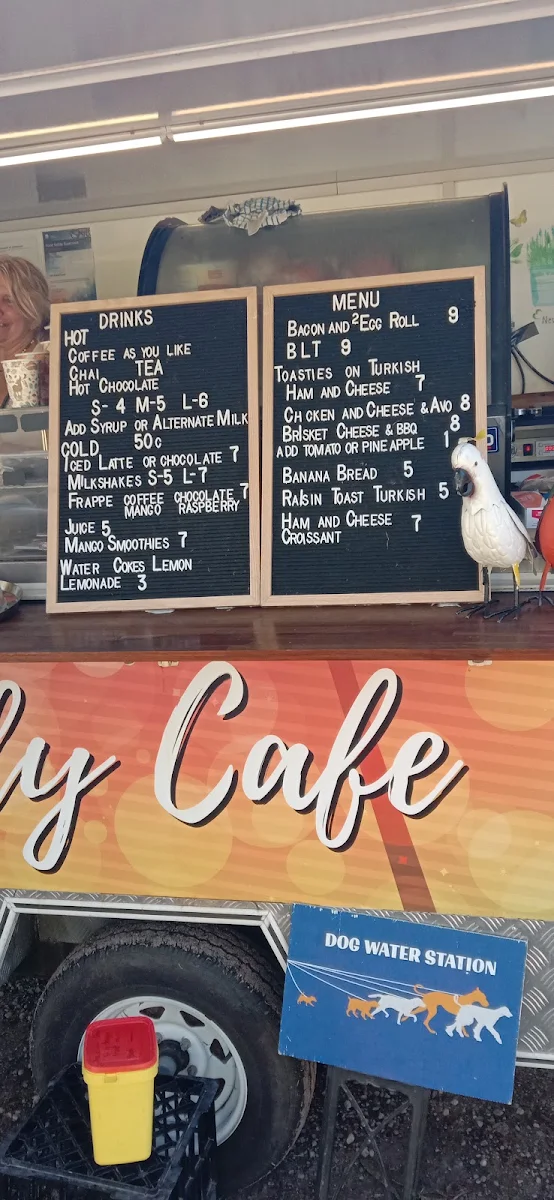 DRINKS
HOT
COFFEE AS YOU LIKE
CHAI TEA
HOT CHOCOLATE
S- 4 M-5 L-6
ADD SYRUP OR ALTERNATE MILK
50c
COLD
ICED LATTE OR CHOCOLATE 7
MILKSHAKES S-5 L-7
FRAPPE COFFEE CHOCOLATE 7
MANGO RASPBERRY
JUICE 5
MANGO SMOOTHIES 7
WATER COKES LEMON
LEMONADE 3
MENU
BACON AND 2EGG ROLL 9
BLT 9
TOASTIES ON TURKISH
HAM AND CHEESE 7
CHICKEN AND CHEESE &AVO 8
BRISKET CHEESE & BBQ 8
ADD TOMATO OR PINEAPPLE 1
BANANA BREAD 5
RAISIN TOAST TURKISH 5
HAM AND CHEESE 7
CROISSANT
ly Cafe
DOG WATER STATION